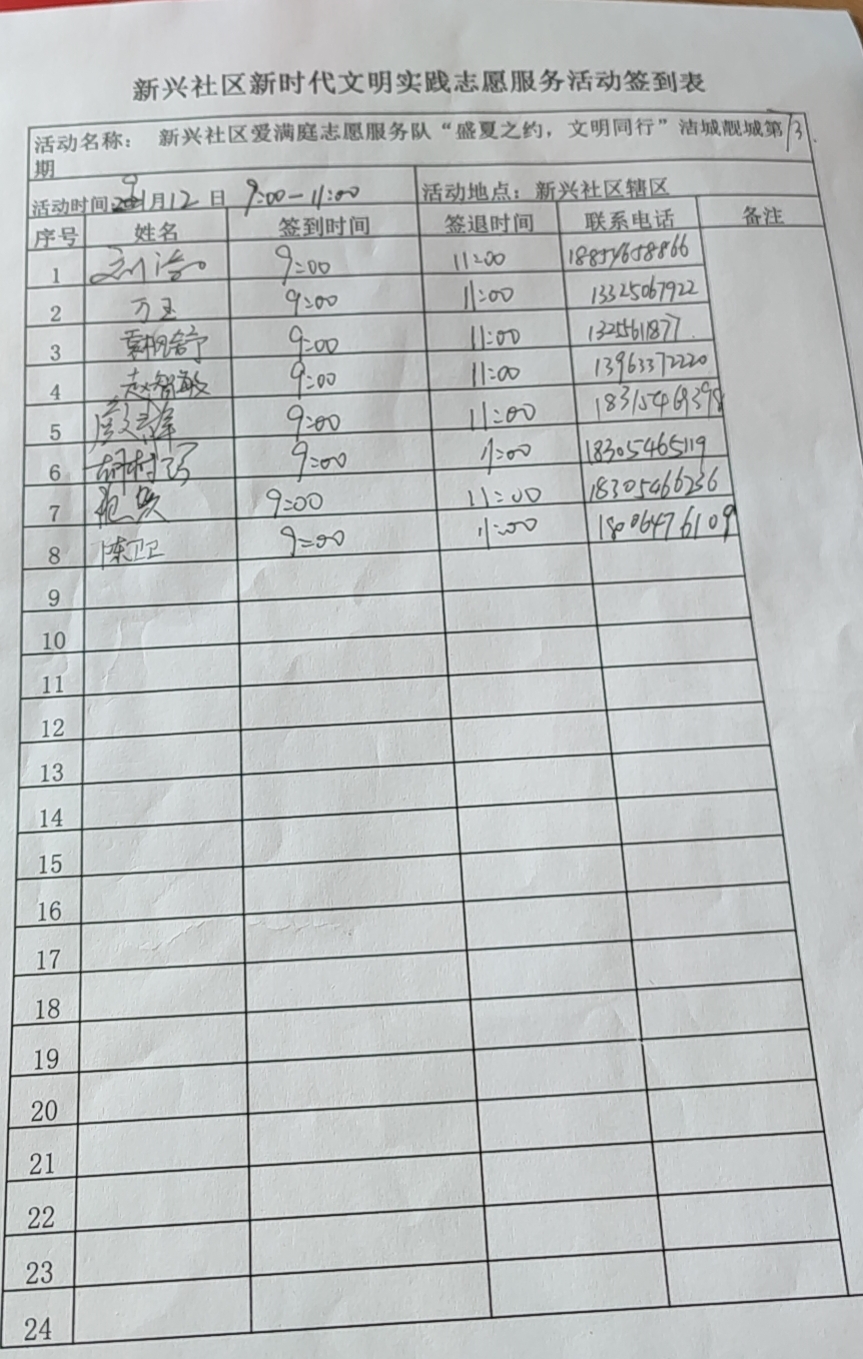 新兴社区新时代文明实践志愿服务活动签到表
活动名称： 新兴社区爱满庭志愿服务队“盛夏之约，文明同行”洁城靓城第13
期
活动时间 9月12日 9:00-11:00 活动地点：新兴社区辖区
序号 姓名 签到时间 签退时间 联系电话 备注
1 9:00 11:00 18854658866
2 万玉 9:00 11:00 13325067922
3 9:00 11:00 1325561877
4 赵智敏 9:00 11:00 13963372220
5 9:00 11:00
6 9:00 11:00 18305465119
7 9:00 11:00 18305466236
8 陈卫卫 9:00 11:00 18006476109
9
10
11
12
13
14
15
16
17
18
19
20
21
22
23
24